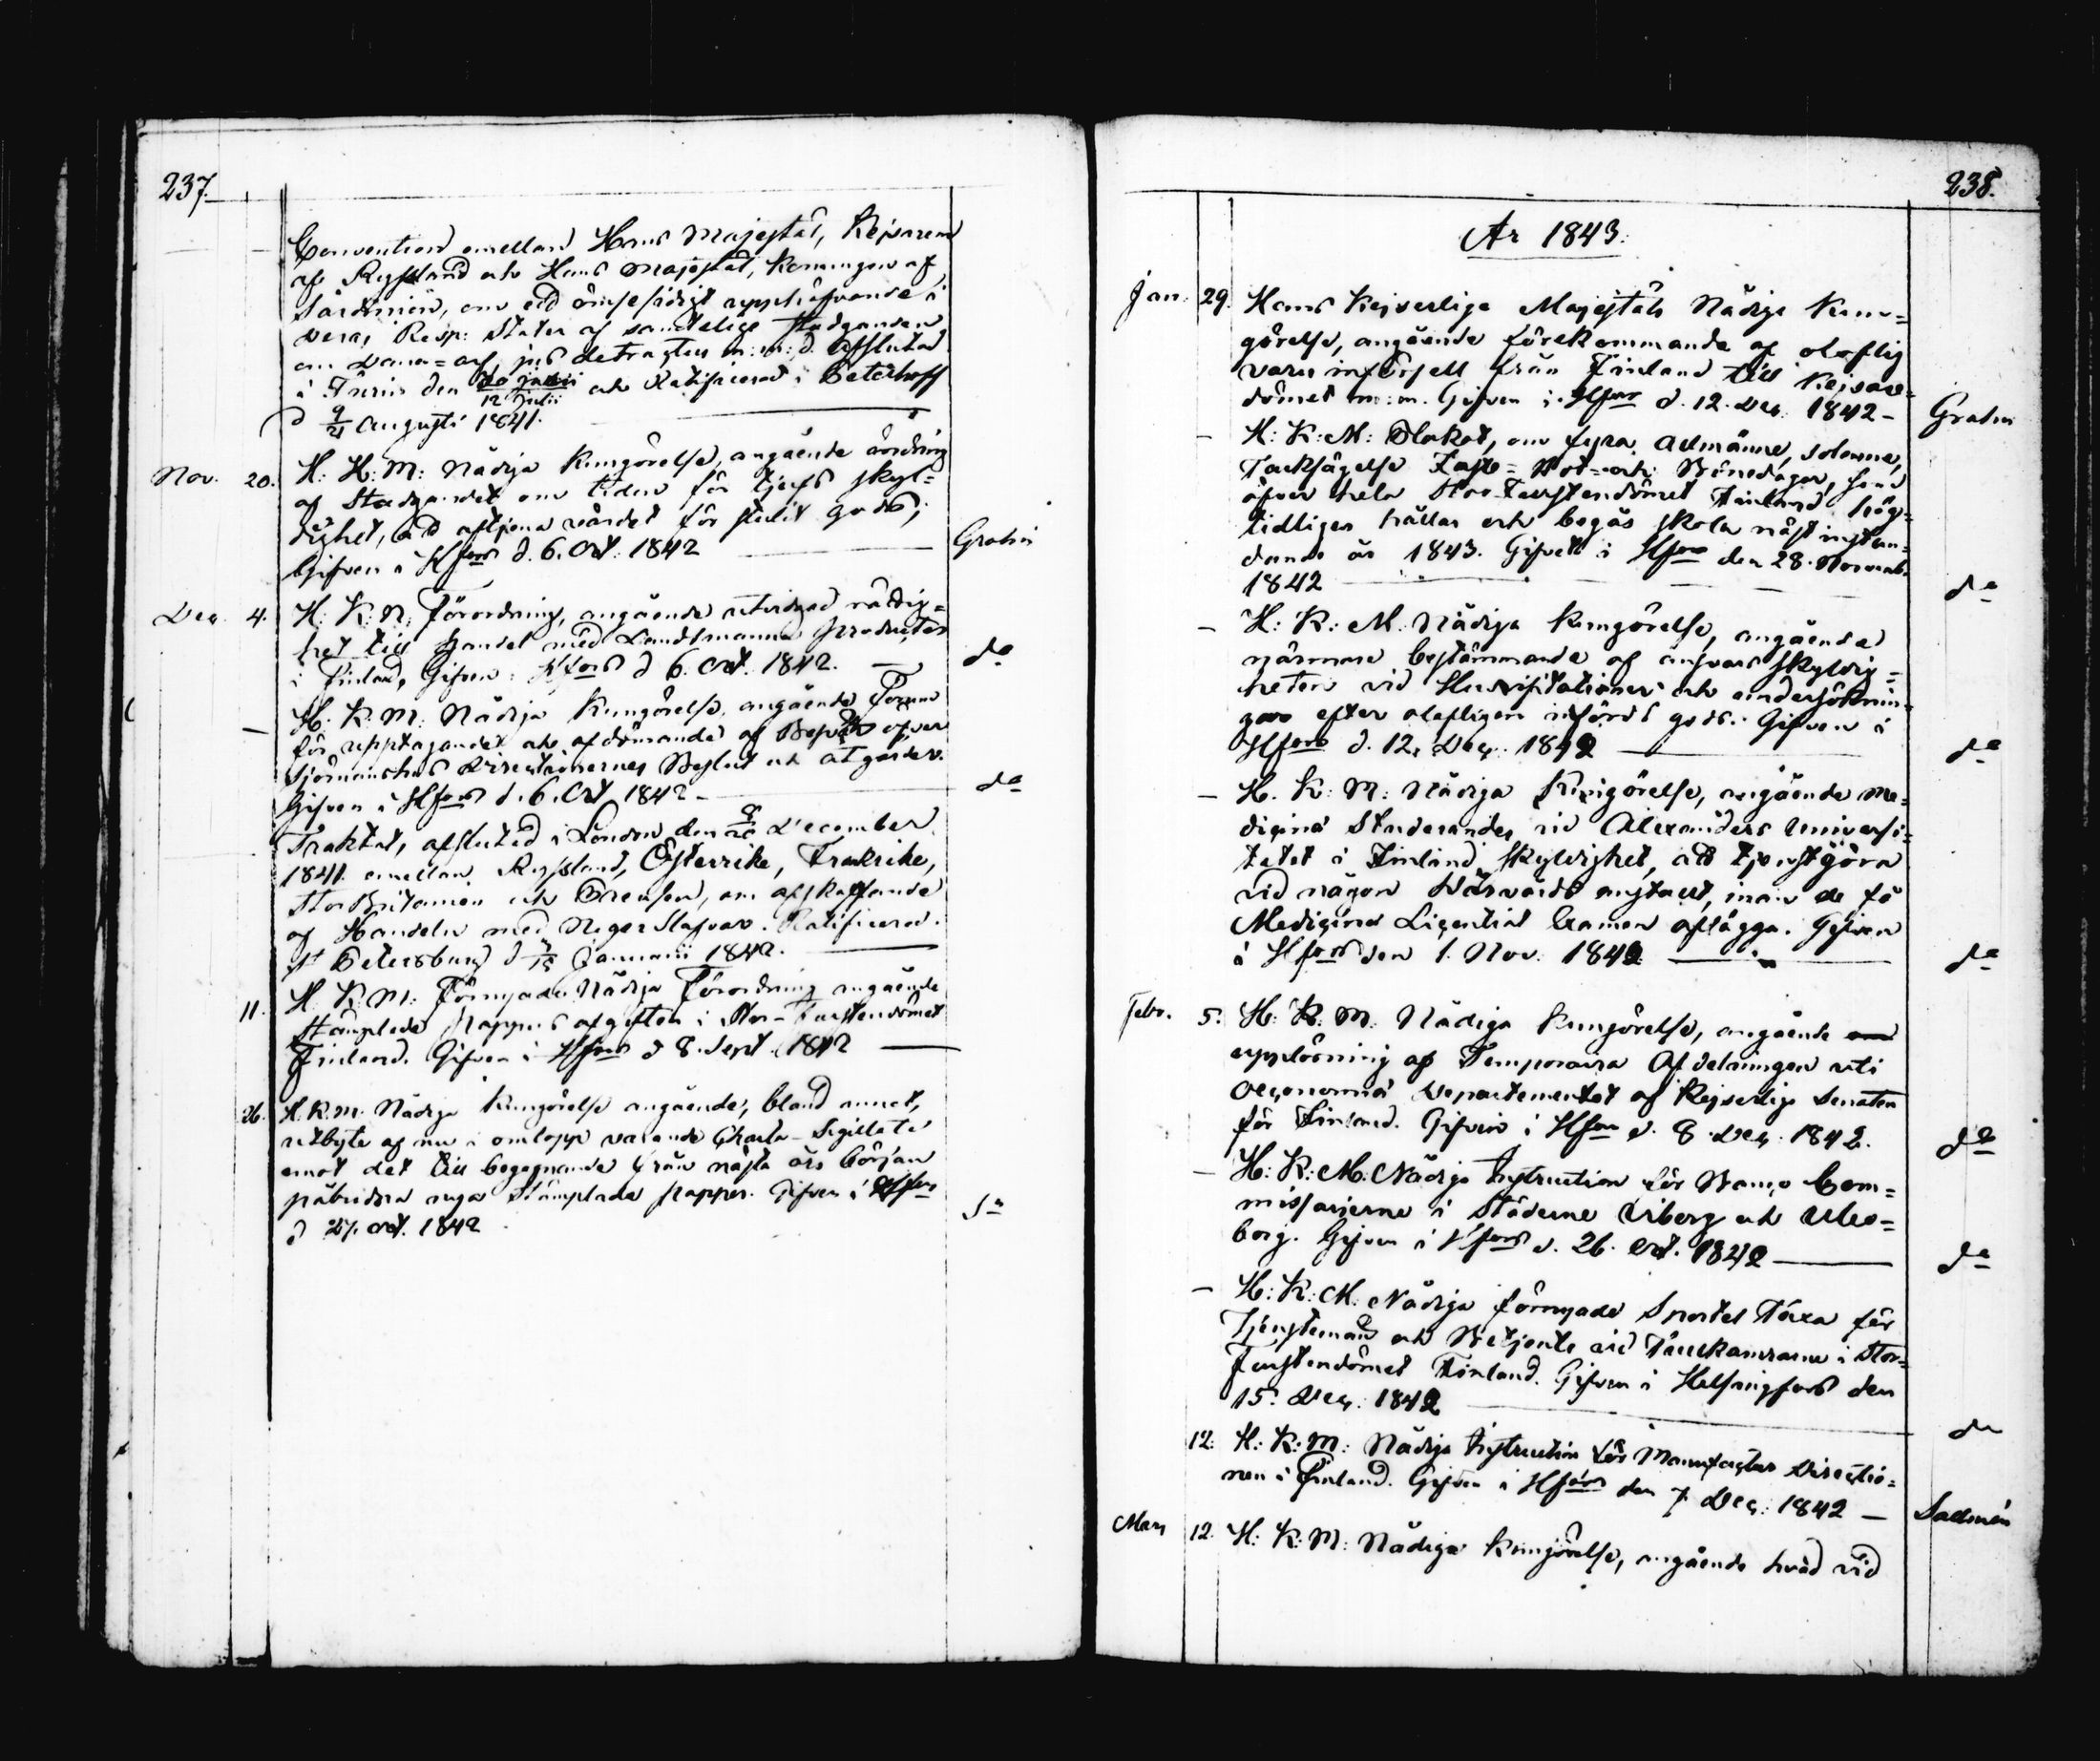 237.
Convention emellan Hans Majestät, Kejsaren
af Ryssland och Hans Majestät, Konungen af
Sardinien, om ett ömsesidigt upphäfvande i
deras Resp: Stater af samtelige stadganden
om Dana-arf, jus detractus m:m:d. Afslutad
i Turin den 30 junii / 12 Julii och Ratificerad i Peterhoff
d 9/21 Augusti 1841.
Nov. 20. H: K: M: Nådiga Kungörelse, angående ändring
af Stadgandet om tiden för tjufs skyl=
dighet, att aftjena värdet för stulit gods;
Gifven i Hfors d. 6. Oct. 1842 Grahn
Dec. 4. H: K: M: Förordning, angående utvidgad rättig=
het till handel med Landtmanna producter
i Finland, Gifven i Hfors d 6. Oct. 1842. — do
— H. K. M: Nådiga Kungörelse, angående Forum
för upptagandet och afdömande af Besvär öfver
Sjömanshus Directionernes Beslut och åtgärder.
Gifven i Hfors d. 6. Oct 1842 — do
Traktat, afslutad i London den 8/20 December
1841 emellan Ryssland, Österrike, Frankrike,
Stor Britanien och Preussen, om afskaffande
af Handeln med Neger Slafvar. Ratificerad.
St Petersburg d 3/15 Januarii 1842.
11. H. K. M: Förnyade Nådiga Förordning angående
Stämplade Pappers afgiften i Stor-Furstendömet
Finland. Gifven i Hfors d 8. Sept. 1842 —
26. H. K. M. Nådiga Kungörelse angående, bland annat,
utbyte af nu i omlopp varande Charta-Sigillata
emot det till begagnande från nästa års början
påbudna nya Stämplade papper. Gifven i Hfors
d 27. oct. 1842 do
238.
År 1843.
Jan. 29. Hans Kejserliga Majestäts Nådiga Kun=
görelse, angående förekommande af oloflig
varu införsell från Finland till Kejsare=
dömet m:m. Gifven i Hfors d. 12. Dec. 1842 — Grahn
— H: K: M: Plakat, om fyra Allmänna, solenna,
Tacksägelse Faste- Bot- och Bönedagar, som
öfver hela Stor Furstendömet Finland hög=
tidligen hållas och begås skola nästinstun=
dande år 1843. Gifvet i Hfors den 28. Novemb.
1842 do
— H: K: M. Nådiga Kungörelse, angående
närmare bestämmande af ansvars skyldig=
heten vid Husvisitationer och undersöknin=
gar efter olofligen infördt gods. Gifven i
Hfors d. 12. Dec. 1842 do
— H. K: M: Nådiga Kungörelse, angående Me=
dicinæ Studerandes vid Alexanders Universi=
tetet i Finland skyldighet, att tjenstgöra
vid någon vårds anstalt, innan de få
Medicinæ Licentiat Examen aflägga. Gifven
i Hfors den 1. Nov. 1842 do
Febr. 5. H: K: M. Nådiga Kungörelse, angående
upplösning af Temporaira Afdelningen uti
Oeconomiæ Departementet af Kejserliga Senaten
för Finland. Gifven i Hfors d. 8. Dec. 1842. do
— H: K: M: Nådiga Instruction för Banco Com=
missarierne i Städerne Viborg och Uleo=
borg. Gifven i Hfors d. 26. Oct. 1842 do
— H: K: M: Nådiga förnyade Sportel Taxa för
Tjenstemän och Betjente vid Tullkamrarne i Stor=
Furstendömet Finland. Gifven i Helsingfors den
15. Dec. 1842 do
12. H: K: M: Nådiga Instruction för Manufactur Directio=
nen i Finland. Gifven i Hfors den 7. Dec. 1842 — Sadenius
Mars 12. H: K: M: Nådiga Kungörelse, angående hvad vid